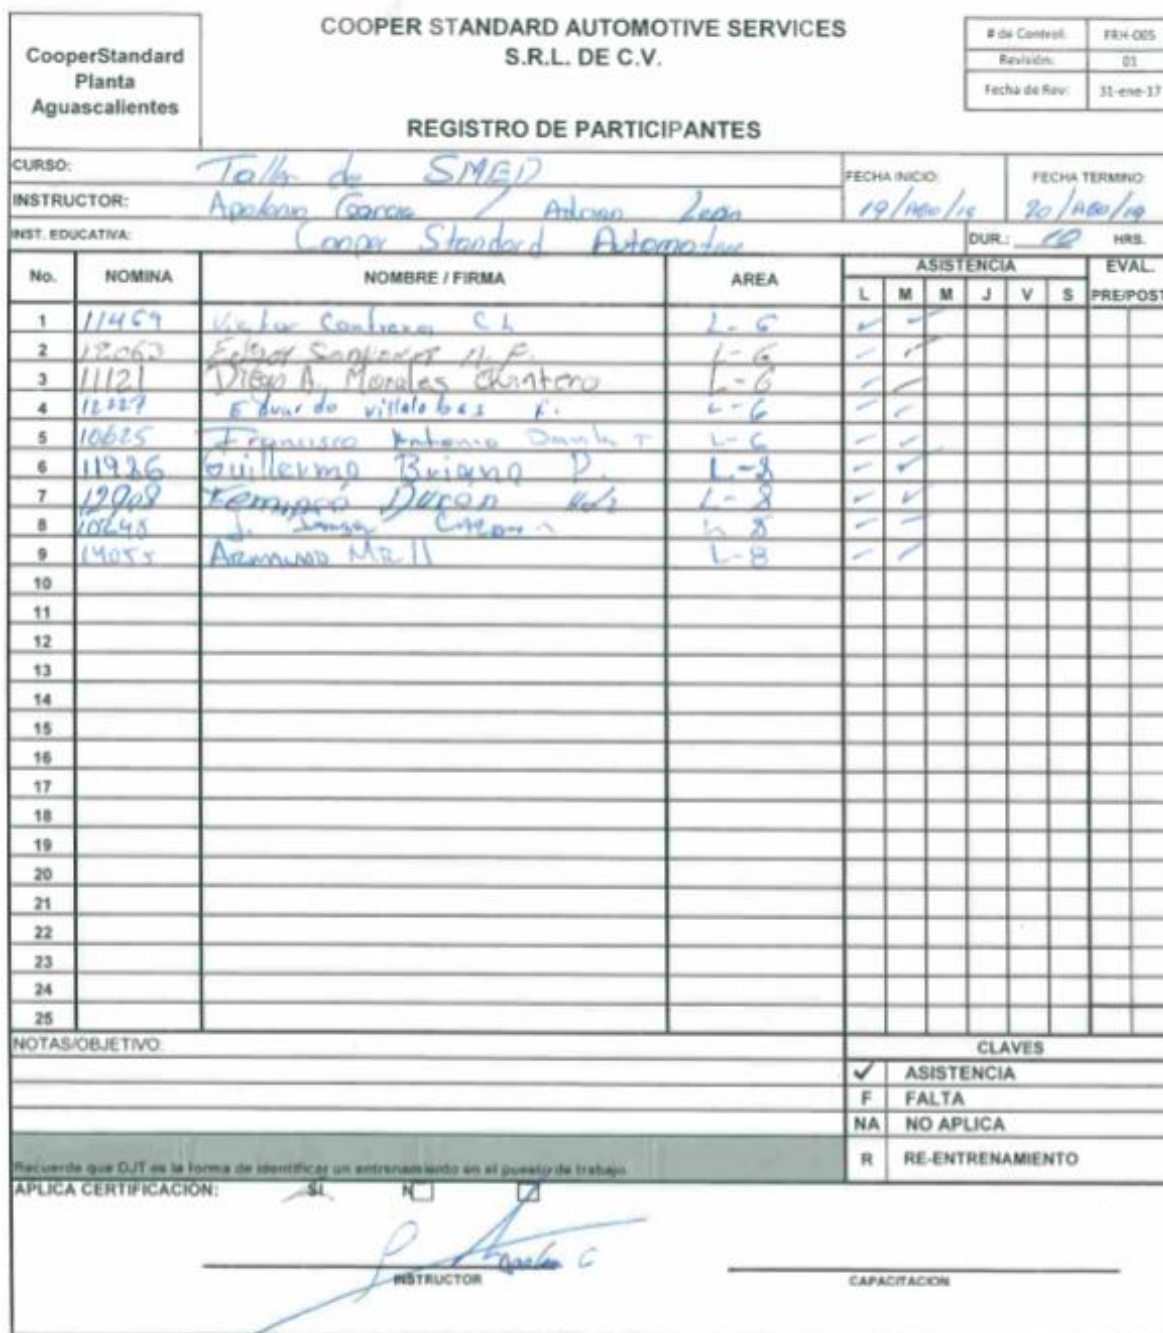 CooperStandard
Planta
Aguascalientes
COOPER STANDARD AUTOMOTIVE SERVICES
S.R.L. DE C.V.
REGISTRO DE PARTICIPANTES
# de Control: FRH-005
Revisión: 01
Fecha de Rev: 31-ene-17
CURSO: Taller de SMED
INSTRUCTOR: Apolonio Garcia / Adrian Leon
FECHA INICIO: 19/AGO/19
FECHA TERMINO: 20/AGO/19
INST. EDUCATIVA: Cooper Standard Automotive
DUR.: HRS.
No. NOMINA NOMBRE / FIRMA AREA ASISTENCIA EVAL.
L M M J V S PRE/POST
1 11469 Victor Contreras L-6 ✓ ✓
2 L-6 ✓ ✓
3 11121 Diego A. Morales Quintero L-6 ✓ ✓
4 Eduardo villalobos F. L-6 ✓ ✓
5 10625 Francisco Antonio L-6 ✓ ✓
6 11926 Guillermo Briano L-8 ✓ ✓
7 12908 Duron L-8 ✓ ✓
8 J. L 8 ✓ ✓
9 14055 Armando L-8 ✓ ✓
10
11
12
13
14
15
16
17
18
19
20
21
22
23
24
25
NOTAS/OBJETIVO:
CLAVES
✓ ASISTENCIA
F FALTA
NA NO APLICA
R RE-ENTRENAMIENTO
Recuerde que OJT es la forma de identificar un entrenamiento en el puesto de trabajo.
APLICA CERTIFICACION: SI
INSTRUCTOR
CAPACITACION